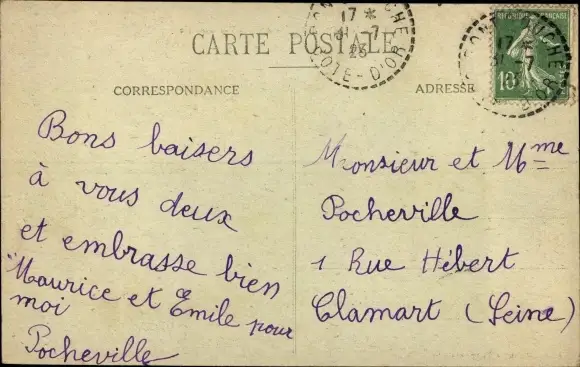 CARTE POSTALE
CORRESPONDANCE
ADRESSE
17 *
31-7
23
COTE-D'OR
RÉPUBLIQUE FRANÇAISE
10
Bons baisers
à vous deux
et embrasse bien
Maurice et Émile pour
moi
Pocheville
Monsieur et Mme
Pocheville
1 Rue Hébert
Clamart (Seine)